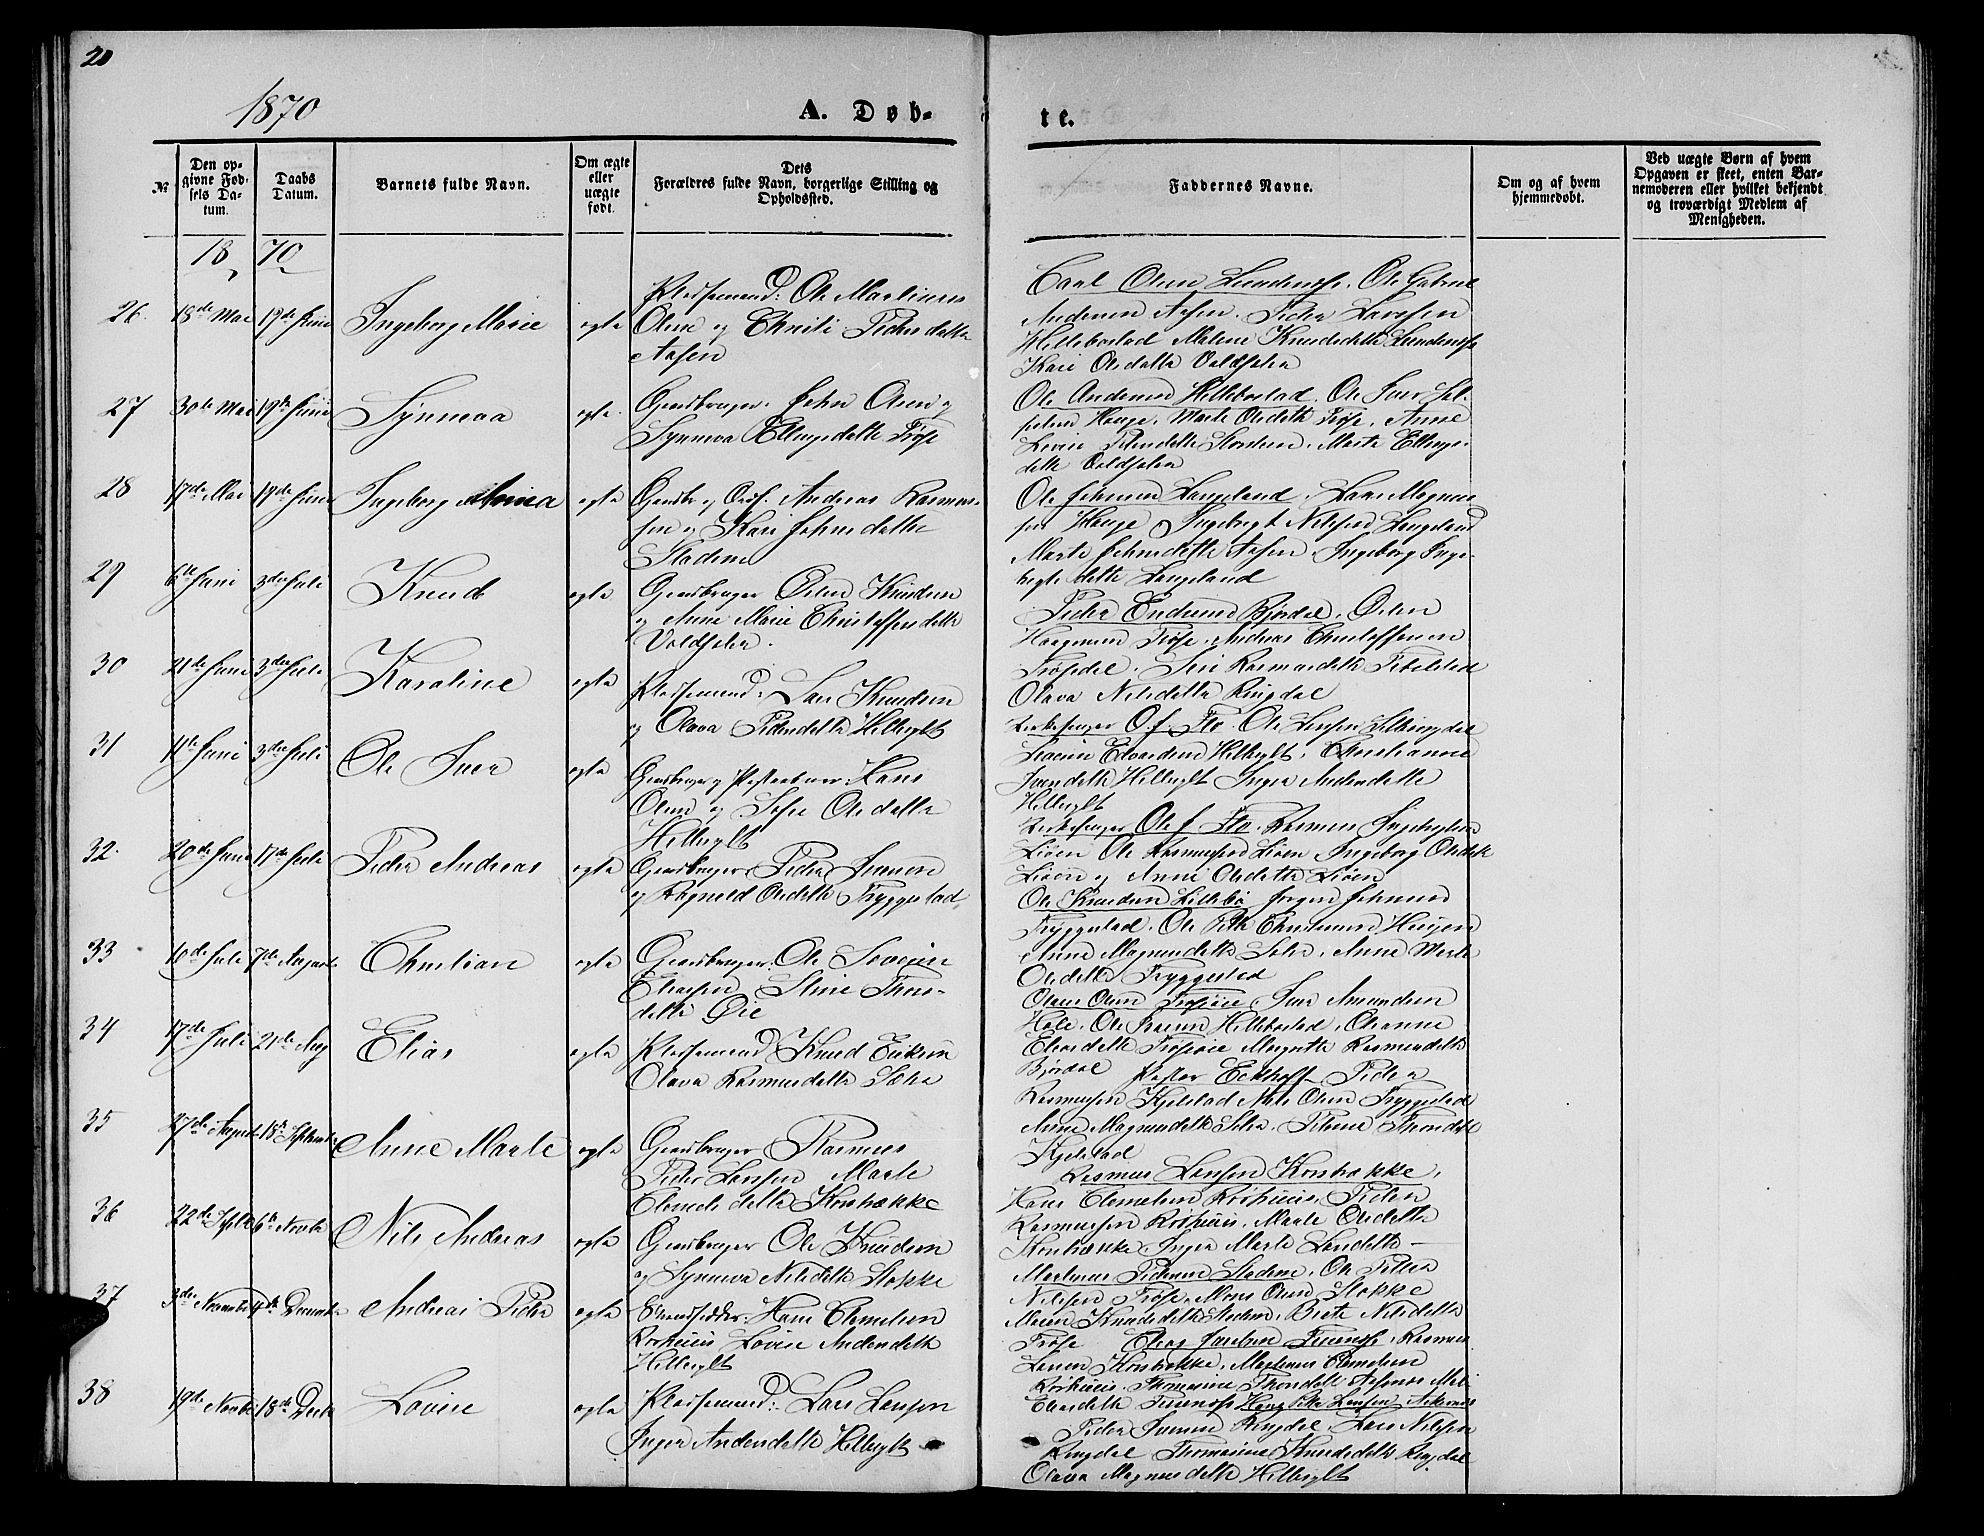 20
1870
A. Døb-
te.
№
Den op-
givne Fød-
sels Da-
tum.
Daabs
Datum.
Barnets fulde Navn.
Om ægte
eller
uægte
født.
Dets
Forældres fulde Navn, borgerlige Stilling og
Opholdssted.
Faddernes Navne.
Om og af hvem
hjemmedøbt.
Ved uægte Børn af hvem
Opgaven er skeet, enten Bar-
nemoderen eller hvilket bekjendt
og troværdigt Medlem af
Menigheden.
18 70
26. 18de Mai 19de Juni Ingeborg Marie ægte
Pladsemand: Ole Martinus
Olsen og Christi Pedersdatter
Aasen
Carl Olsen Ole Gabriel
Andersen Aasen. Peder Larssen
Hellebostad Malene Knudsdatter
Kari Olsdatter Voldsdalen
27 30te Mai 19de Juni Synneva ægte
Gaardbruger: John Olsen og
Synneva Ellingsdatter Trøse
Ole Andersen Hellebostad, Ole Iver
Hauge, Marte Olsdatter Trøse, Anne
Lovise Petersdatter Marte Ellings-
datter
28 17de Mai 19de Juni Ingeborg Anna ægte
Gaardbr. og Andreas Rasmus-
sen og Kari Johnsdatter
Stadem
Ole Johnsen Langeland, Lars Magnus
sen Hauge Ingebrigt Nilssen Langeland
Marte Johnsdatter Aasen, Ingeborg Inge-
brigtsdatter Langeland
29 6te Juni 3die Juli Knud ægte
Gaardbruger Østen Knudsen
og Anne Marie Christoffersdatter
Peder Endresen Bjørdal, Østen
Haagensen Trøse, Andreas Christoffersen
Trøsedal, Rasmusdatter
Olava Nilsdatter Ringdal
30 21de Juni 3die Juli Karoline ægte
Pladsemand: Lars Knudsen
og Olava Pedersdatter Hellesylt
Kirkesanger O. J. Flo. Ole
Edvardsen Hellesylt, Christianne
Iversdatter Hellesylt Inger Andersdatter
Hellesylt
31 11te Juni 3die Juli Ole Iver ægte
Gaardbruger og Hans
Olsen og Sofie Olsdatter
Hellesylt
Kirkesanger Ole J. Flo, Rasmus Ingebrigtsen
Liøen Ole Rasmussen Liøen, Ingeborg Olsdatter
Liøen og Anne Olsdatter Liøen
32. 20de Juni 17de Juli Peder Andreas ægte
Gaardbruger, Peder Iversen
og Ragnild Olsdatter Tryggestad
Ole Knudsen Lillebø Jørgen Johnsen
Tryggestad, Ole
Anne Magnusdatter Anne Marte
Olsdatter Tryggestad
33 10de Juli 7de August Christian ægte
Gaardbruger. Ole Severin
Eliassen, Stine Thors-
datter Øie
Olaus Olsen Iver Amundsen
Hole, Ole Hellebostad,
Eliasdatter Margrethe Rasmusdatter
Bjørdal
34 17de Juli 21de Aug Elias ægte
Pladsemand, Knud Eriksen
Olava Rasmusdatter
Pastor Eckhoff Peder
Rasmussen Kjelstad Nils Olsen Tryggestad
Anne Magnusdatter
Kjelstad
35 27de August 18de September Anne Marte ægte
Gaardbruger Rasmus
Peder Larssen Marte
Clemetsdatter Kornbække
Rasmus Larssen Kornbække,
Hans Clemetsen Rørhuus, Peder
Rasmussen Rørhuus, Marte Olsdatter
Kornbække, Inger Marte Larsdatter
36 22de Septbr 6te Novbr Nils Andreas ægte
Gaardbruger Ole Knudsen
og Synneva Nilsdatter Stokke
Martinus Pedersen Stadem, Ole Petter
Nilssen Trøse, Mons Olsen Stokke
Maren Knudsdatter Stadem, Brite Nilsdatter
Trøse
37 3die November 4de December Andreas Peder ægte
Strandsidder: Hans Clemetsen
Rørhuus Lovise Andersdatter
Hellesylt
Elias Jacobsen Rasmus
Larsen Kornbække, Martinus Clemetsen
Rørhuus, Thomasine
Eliasdatter
38 19de Novbr 18de Decbr Lovise ægte
Pladsemand: Lars Larssen
Inger Andersdatter Hellesylt
Hans Larssen
Peder Iversen Ringdal, Lars Nilssen
Ringdal Thomasine Knudsdatter Ringdal
Olava Magnusdatter Hellesylt